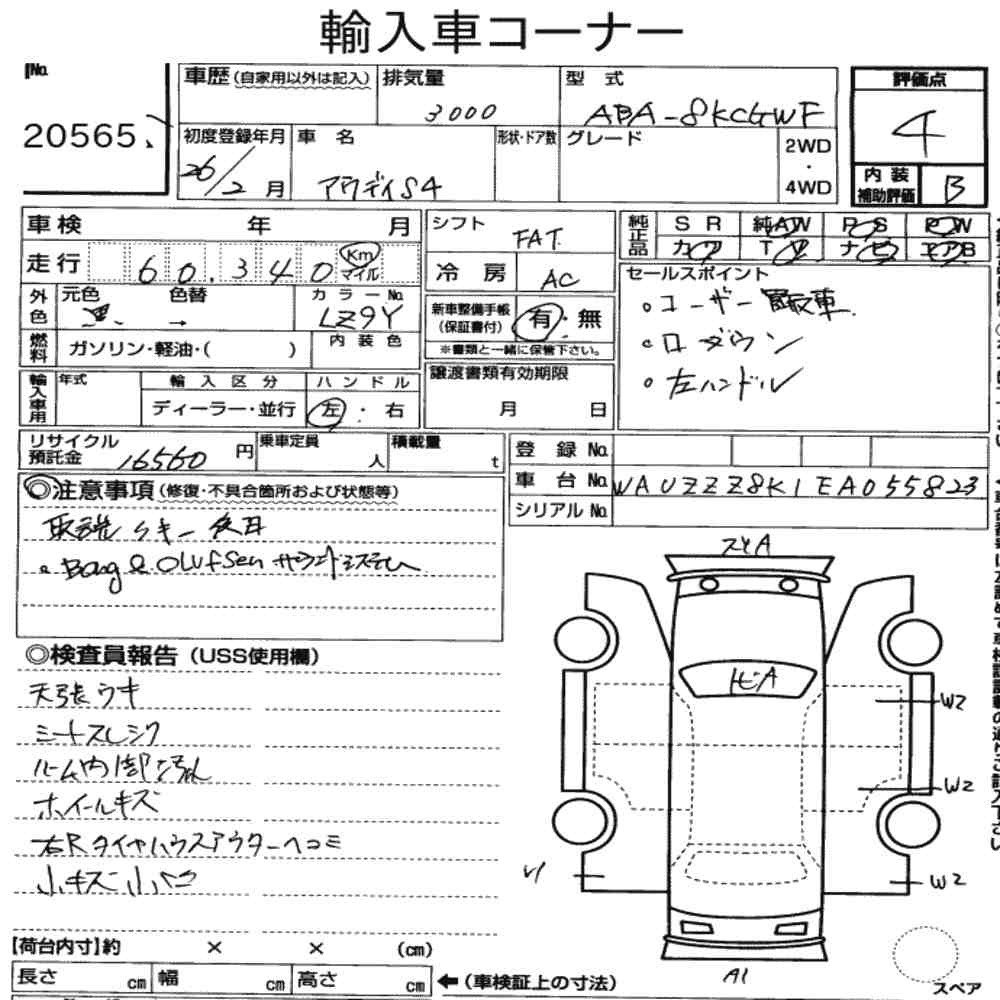 輸入車コーナー
No.
20565
車歴 (自家用以外は記入)
排気量
3000
型 式
ABA-8KCGWF
評価点
4
内 装
補助評価
B
初度登録年月
26/2 月
車 名
アウディS4
形状・ドア数
グレード
2WD
・
4WD
車 検 年 月
走 行 60,340 Km マイル
シフト
FAT
冷 房
AC
純正品
S R 純AW P S P W
カワ T V ナビ エアB
外色
元色 色替
黒 →
カラーNo.
LZ9Y
新車整備手帳
(保証書付)
有・無
※書類と一緒に保管下さい。
セールスポイント
○ユーザー買取車
○ローダウン
○左ハンドル
燃料
ガソリン・軽油・( )
内 装 色
輸入車用
年式
輸 入 区 分
ディーラー・並行
ハ ン ド ル
左・右
譲渡書類有効期限
月 日
リサイクル
預託金
16560 円
乗車定員
人
積載量
t
登 録 No.
車 台 No.
WAUZZZ8K1EA055823
シリアル No.
◎注意事項 (修復・不具合箇所および状態等)
取説 キー 後日
Bang & Olufsen サウンドシステム
◎検査員報告 (USS使用欄)
天張ウキ
シートスレシワ
ルーム内部汚れ
ホイールキズ
右Rタイヤハウスアウターヘコミ
小キズ 小ヘコ
A
A
W2
W2
W2
A1
スペア
【荷台内寸】約 × × (cm)
長さ cm 幅 cm 高さ cm
←(車検証上の寸法)